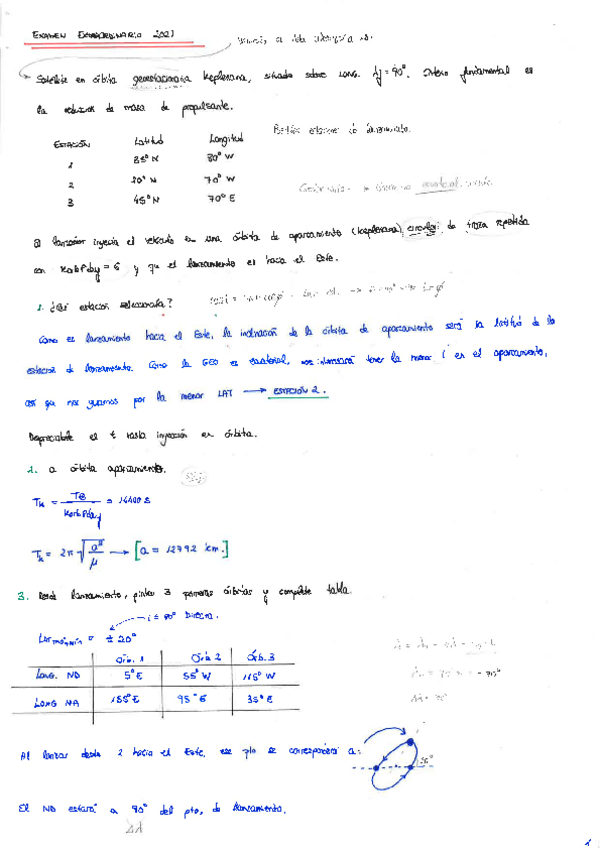 EXAMEN EXTRAORDINARIO 2021
Satélite en órbita geoestacionaria kepleriana, situado sobre long. λ = 90°. Interés fundamental es
la reducción de masa de propulsante.
ESTACIÓN Latitud Longitud
1 35° N 80° W
2 20° N 70° W
3 45° N 70° E
El lanzador inyecta el vehículo en una órbita de aparcamiento (kepleriana) circular de traza repetida
con KorbPday = 6 y que el lanzamiento es hacia el Este.
1. ¿Qué estación seleccionaría?
Como es lanzamiento hacia el Este, la inclinación de la órbita de aparcamiento será la latitud de la
estación de lanzamiento. Como la GEO es ecuatorial, nos interesará tener la menor i en el aparcamiento,
así que nos guiamos por la menor LAT → ESTACIÓN 2.
Despreciable el t hasta inyección en órbita.
2. a órbita aparcamiento.
Tk = T⊕ / KorbPday = 14400 s
Tk = 2π √(a³/μ) → [a = 12792 km.]
3. Desde lanzamiento, pintar 3 primeras órbitas y complete tabla.
i ≤ 90° Directa.
± 20°
Órb. 1 Órb 2 Órb. 3
LONG. ND 5° E 55° W 115° W
LONG NA 155° E 95° E 35° E
Al lanzar desde 2 hacia el Este, ese pto se corresponderá a:
El ND estará a 90° del pto. de lanzamiento.
Δλ
1